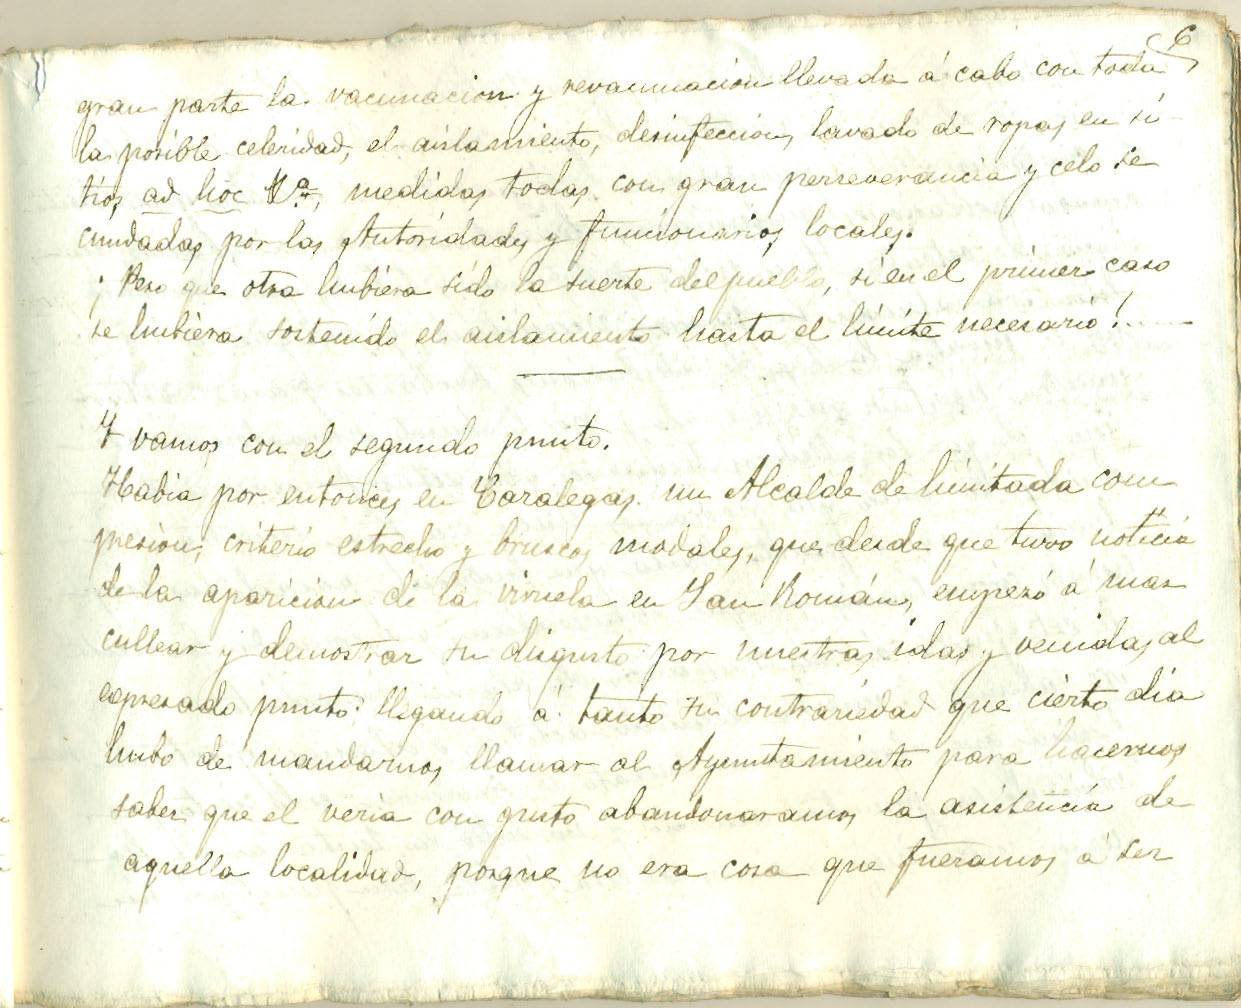 6
gran parte la vacunacion y revacunación llevada á cabo con toda
la posible celeridad, el aislamiento, desinfeccion, lavado de ropas en sí-
tios, ad hoc &a, medidas todas con gran perseverancia y celo se
cundadas por las Autoridades y funcionarios locales.
¡Pero que otra hubiera sido la suerte del pueblo, si en el primer caso
se hubiera sostenido el aislamiento hasta el limite necesario!
Y vamos con el segundo punto.
Habia por entonces en Garalegas un Alcalde de limitada com
presion, criterio estrecho y bruscos modales, que desde que tuvo noticia
de la aparicion de la viruela en San Román, empezó á mas
cullear y demostrar su disgusto por nuestras idas y venidas al
expresado punto: llegando á tanto su contrariedad que cierto dia
hubo de mandarnos llamar al Ayuntamiento para hacernos
saber que el veria con gusto abandonaramos la asistencia de
aquella localidad, porque no era cosa que fueramos á ser